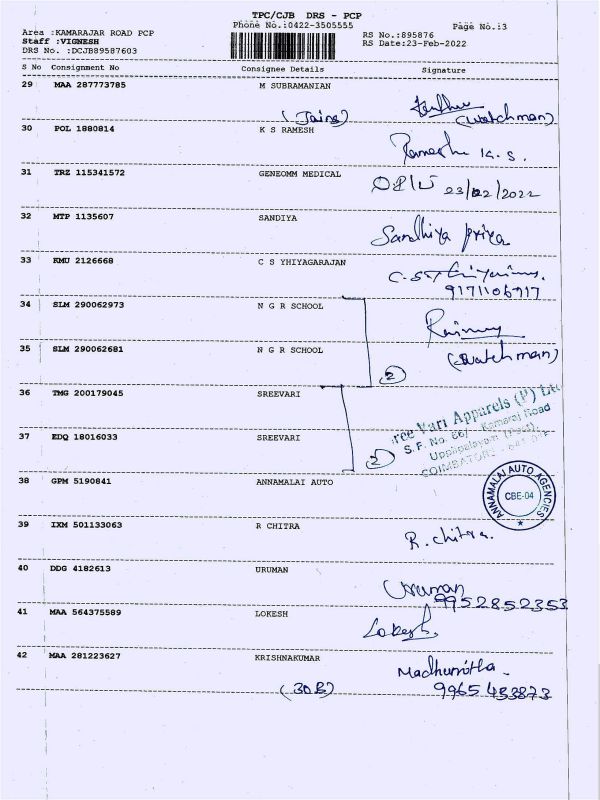 TPC/CJB DRS - PCP
Phone No.:0422-3505555
Page No.:3
Area :KAMARAJAR ROAD PCP
Staff :VIGNESH
DRS No. :DCJB89587603
RS No.:895876
RS Date:23-Feb-2022
S No Consignment No Consignee Details Signature
29 MAA 287773785 M SUBRAMANIAN
(Watchman)
30 POL 1880814 K S RAMESH
Ramesh K. S.
31 TRZ 115341572 GENEOMM MEDICAL
23/02/2022
32 MTP 1135607 SANDIYA
Sandhiya priya
33 KMU 2126668 C S YHIYAGARAJAN
9171106717
34 SLM 290062973 N G R SCHOOL
35 SLM 290062681 N G R SCHOOL
(Watchman)
2
36 TMG 200179045 SREEVARI
ree Vari Apparels (P) Lt
S.F. No. 66/ Kamaraj Road
Uppilipalayam (Post),
COIMBATORE
37 EDQ 18016033 SREEVARI
2
38 GPM 5190841 ANNAMALAI AUTO
ANNAMALAI AUTO AGENCIES
CBE-04
39 IXM 501133063 R CHITRA
R. chitra.
40 DDG 4182613 URUMAN
Uruman
9952852353
41 MAA 564375589 LOKESH
Lokesh.
42 MAA 281223627 KRISHNAKUMAR
Madhumitha
(30B) 9965433873